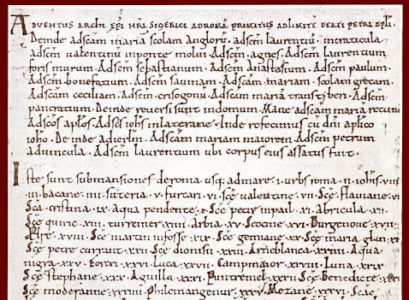 ADVENTUS ARCHIEPI NRI SIGERICI AD ROMĀ PRIMITUS AD LIMITĒ BEATI PETRI APLI.
Deinde ad scam mariā scolam angloru. Ad scm laurentiu in craticula.
Ad scm valentinu in ponte molui. Ad scm agnes. Ad scm laurentium
foris murum. Ad scm sebastianum. Ad scm anastasium. Ad scm paulum.
Ad scm bonefatium. Ad scam savinam. Ad scam mariam scolam grecam.
Ad scam ceciliam. Ad scm crisogonu. Ad scam mariā transtyben. Ad scm
pancratium. Deinde reversi sunt in domum. Mane ad scam mariā rotund
Ad scos aplos. Ad scī iohs in laterane. Inde refecimus cu dni aplico
ioho. Deinde ad ierlm. Ad scam mariam maiorem. Ad scm petrum
ad vincula. Ad scm laurentium ubi corpus eius assatus fuit.
Iste sunt submansiones de roma usq ad mare. i. urbs roma. ii. iohis viiii.
iii. bacane. iiii. suteria. v. furcari. vi. sce valentine. vii. sce flaviane. viii.
sca cristina. ix. aqua pendente. x. sce petir in pail. xi. abricula. xii.
sce quiric. xiii. turreiner. xiiii. arbia. xv. seocine. xvi. burgenove. xvii.
aelse. xviii. sce martin in fosse. xix. sce gemiane. xx. sce maria glan. xxi.
sce petre currant. xxii. sce dionisii. xxiii. arneblanca. xxiiii. aqua
nigra. xxv. forcri. xxvi. luca. xxvii. campmaior. xxviii. luna. xxix.
sce stephane. xxx. aguilla. xxxi. puntremel. xxxii. sce benedicte. xxxiii.
sce moderanne. xxxiiii. philemangenur. xxxv. metane. xxxvi.